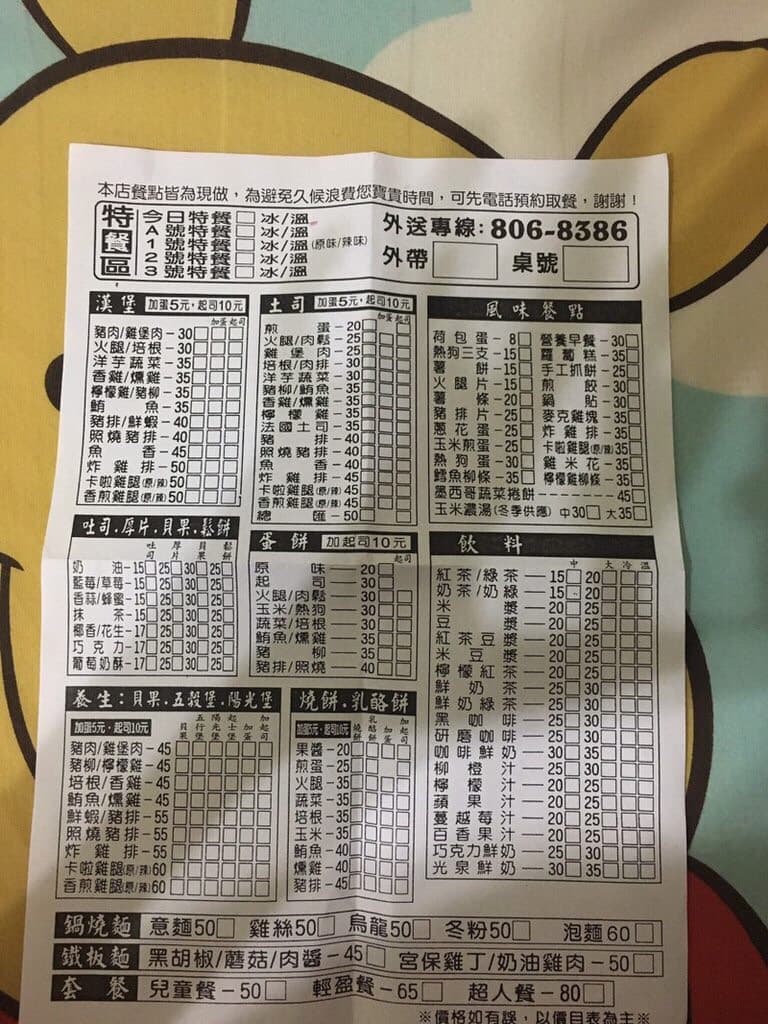 本店餐點皆為現做，為避免久候浪費您寶貴時間，可先電話預約取餐，謝謝！
特餐區
今日特餐□冰/溫
A號特餐□冰/溫
1號特餐□冰/溫(原味/辣味)
2號特餐□冰/溫
3號特餐□冰/溫
外送專線:806-8386
外帶 桌號
漢堡 加蛋5元，起司10元
加蛋 起司
豬肉/雞堡肉-30
火腿/培根-30
洋芋蔬菜-35
香雞/燻雞-35
檸檬雞/豬柳-35
鮪魚-35
豬排/鮮蝦-40
照燒豬排-40
魚香-45
炸雞排-50
卡啦雞腿(原/辣)50
香煎雞腿(原/辣)50
土司 加蛋5元，起司10元
加蛋 起司
煎蛋-20
火腿/肉鬆-25
雞堡肉-25
培根/肉排-30
洋芋蔬菜-30
豬柳/鮪魚-35
香雞/燻雞-35
檸檬雞-35
法國土司-35
豬排-40
照燒豬排-40
魚香-40
炸雞排-45
卡啦雞腿(原/辣)45
香煎雞腿(原/辣)45
總匯-50
風味餐點
荷包蛋-8□ 營養早餐-30□
熱狗三支-15□ 蘿蔔糕-35□
薯餅-15□ 手工抓餅-25□
火腿片-15□ 煎餃-30□
薯條-20□ 鍋貼-30□
豬排片-25□ 麥克雞塊-35□
蔥花蛋-25□ 炸雞排-35□
玉米煎蛋-25□ 卡啦雞腿(原/辣)35□
熱狗蛋-30□ 雞米花-35□
鱈魚柳條-35□ 檸檬雞柳條-35□
墨西哥蔬菜捲餅-45□
玉米濃湯(冬季供應) 中30□ 大35□
吐司.厚片.貝果.鬆餅
吐司 厚片 貝果 鬆餅
奶油-15□25□30□25□
藍莓/草莓-15□25□30□25□
香蒜/蜂蜜-15□25□30□25□
抹茶-15□25□30□25□
椰香/花生-17□25□30□25□
巧克力-17□25□30□25□
葡萄奶酥-17□25□30□25□
蛋餅 加起司10元
起司
原味-20
起司-30
火腿/肉鬆-30
玉米/熱狗-30
蔬菜/培根-30
鮪魚/燻雞-35
豬柳-35
豬排/照燒-40
飲料
中 大 冷 溫
紅茶/綠茶-15□20
奶茶/奶綠-15□20
米漿-20□25
豆漿-20□25
紅茶豆漿-20□25
米豆漿-20□25
檸檬紅茶-20□25
鮮奶茶-25□30
鮮奶綠茶-25□30
黑咖啡-25□30
研磨咖啡-25□30
咖啡鮮奶-30□35
柳橙汁-20□25
檸檬汁-20□25
蘋果汁-20□25
蔓越莓汁-20□25
百香果汁-20□25
巧克力鮮奶-25□30
光泉鮮奶-30□35
養生：貝果.五穀堡.陽光堡
加蛋5元，起司10元
貝果 五行堡 陽光堡 起士堡 加蛋 加起司
豬肉/雞堡肉-45
豬柳/檸檬雞-45
培根/香雞-45
鮪魚/燻雞-45
鮮蝦/豬排-55
照燒豬排-55
炸雞排-55
卡啦雞腿(原/辣)60
香煎雞腿(原/辣)60
燒餅.乳酪餅
加蛋5元，起司10元
燒餅 乳酪餅 加蛋 加起司
果醬-20
煎蛋-25
火腿-35
蔬菜-35
培根-35
玉米-35
鮪魚-40
燻雞-40
豬排-45
鍋燒麵 意麵50□ 雞絲50□ 烏龍50□ 冬粉50□ 泡麵60□
鐵板麵 黑胡椒/蘑菇/肉醬-45□ 宮保雞丁/奶油雞肉-50□
套餐 兒童餐-50□ 輕盈餐-65□ 超人餐-80□
※價格如有誤，以價目表為主※